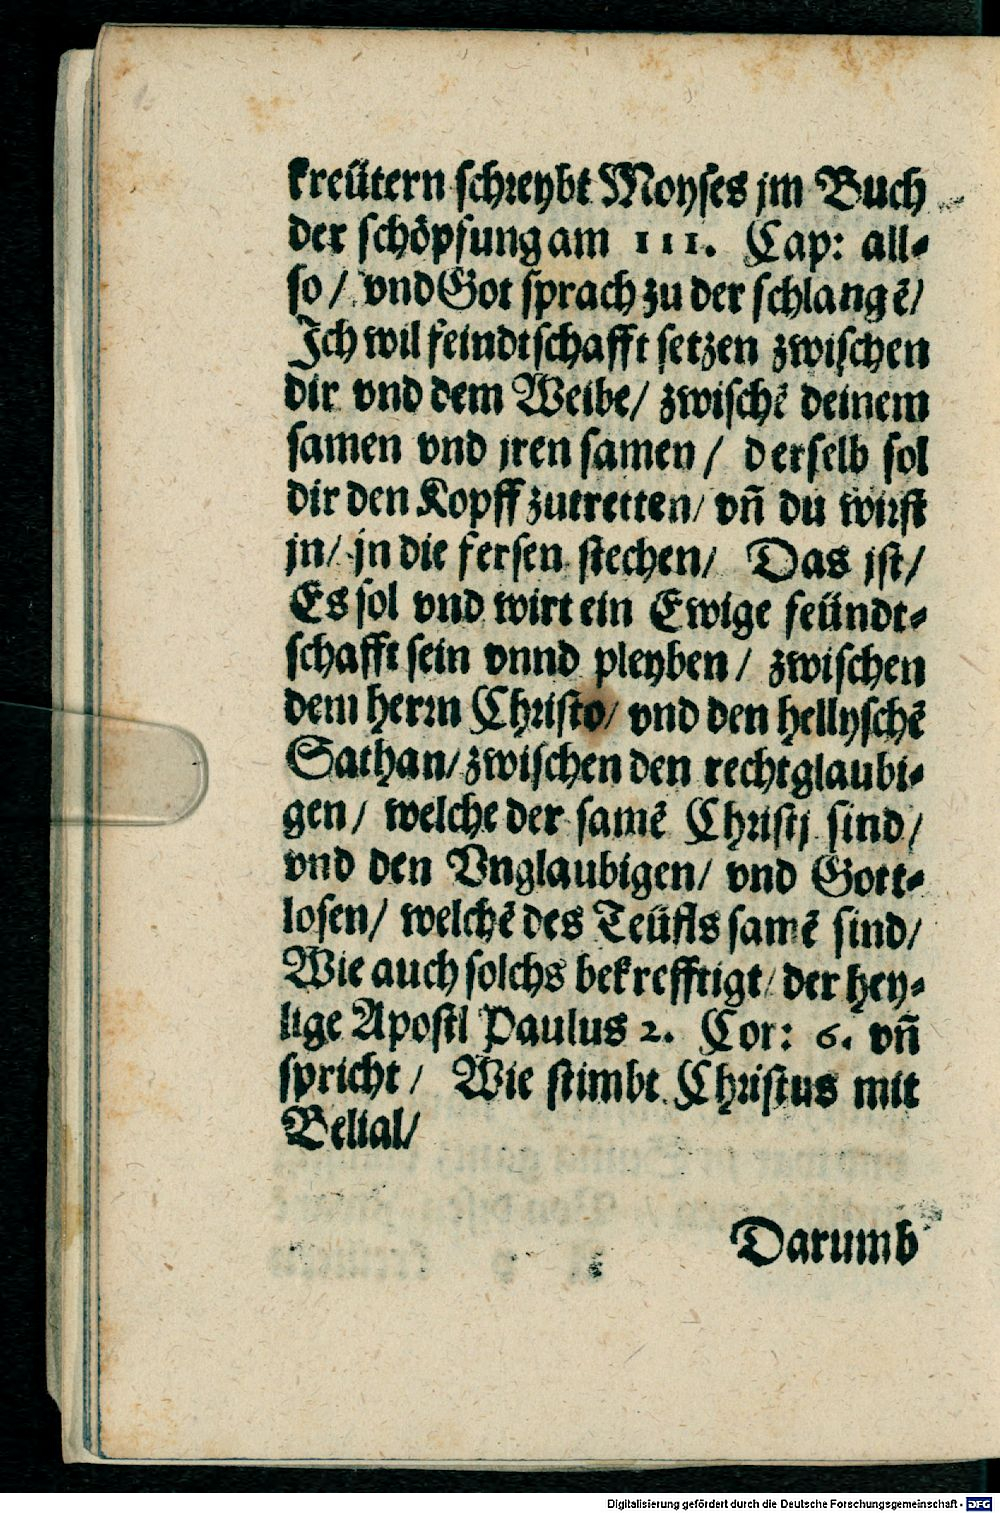 kreütern schreybt Moyses jm Buch
der schöpfung am III. Cap: all⸗
so/ vnd Got sprach zu der schlangē/
Ich wil feindtschafft setzen zwischen
dir vnd dem Weibe/ zwischē deinem
samen vnd jren samen/ derselb sol
dir den Kopff zutretten/ vñ du wirst
jn/ jn die fersen stechen/ Das jst/
Es sol vnd wirt ein Ewige feündt⸗
schafft sein vnnd pleyben/ zwischen
dem herrn Christo/ vnd den hellyschē
Sathan/ zwischen den rechtglaubi⸗
gen/ welche der samē Christj sind/
vnd den Vnglaubigen/ vnd Gott⸗
losen/ welchē des Teüfls samē sind/
Wie auch solchs bekrefftigt/ der hey⸗
lige Apostl Paulus 2. Cor: 6. vñ
spricht/ Wie stimbt Christus mit
Belial/
Darumb
Digitalisierung gefördert durch die Deutsche Forschungsgemeinschaft - DFG